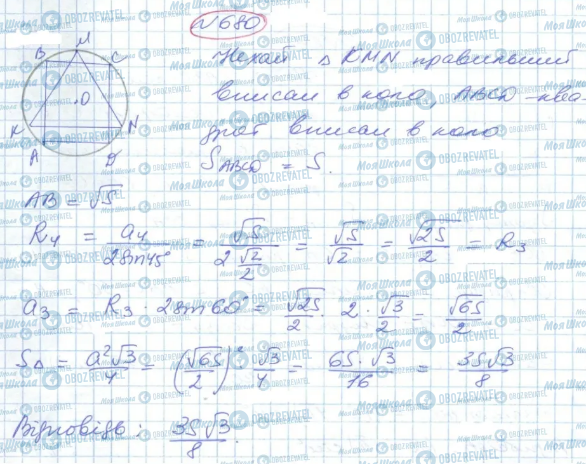 №680
Нехай △ KMN правильний
вписан в коло ABCD - квад
рат вписан в коло
S_ABCD = S.
M
B C
O
K N
A D
AB = √S
R₄ = a₄/(2sin45°) = √S/(2 √2/2) = √S/√2 = √(2S)/2 = R₃
a₃ = R₃ · 2sin60° = √(2S)/2 · 2 · √3/2 = √(6S)/2
S△ = a²√3/4 = (√(6S)/2)² · √3/4 = 6S·√3/16 = 3S√3/8
Відповідь: 3S√3/8.
Моя Школа OBOZREVATEL